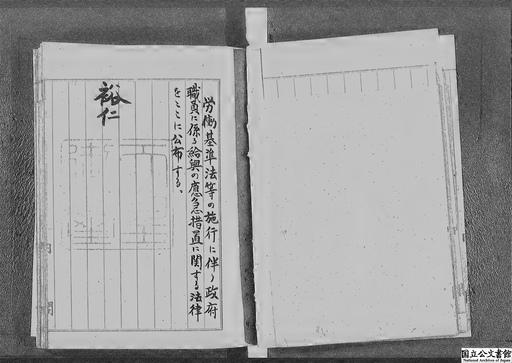 労働基準法等の施行に伴う政府
職員に係る給與の應急措置に関する法律
をここに公布する。
裕仁
内閣
国立公文書館
National Archives of Japan